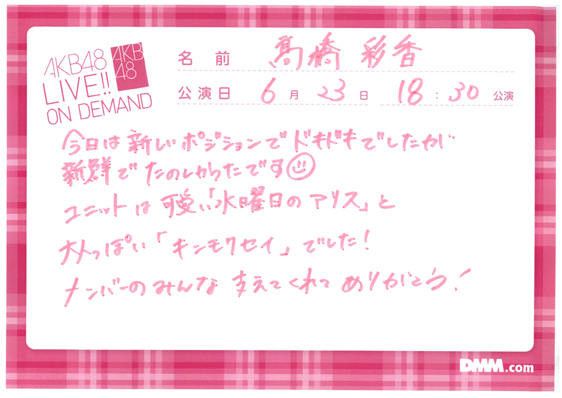 AKB48
LIVE!!
ON DEMAND
AKB
48
名前 髙橋 彩香
公演日 6月 23日 18:30 公演
今日は新しいポジションでドキドキでしたが
新鮮でたのしかったです
ユニットは可愛い「水曜日のアリス」と
大人っぽい「キンモクセイ」でした!
メンバーのみんな支えてくれてありがとう!
DMM.com